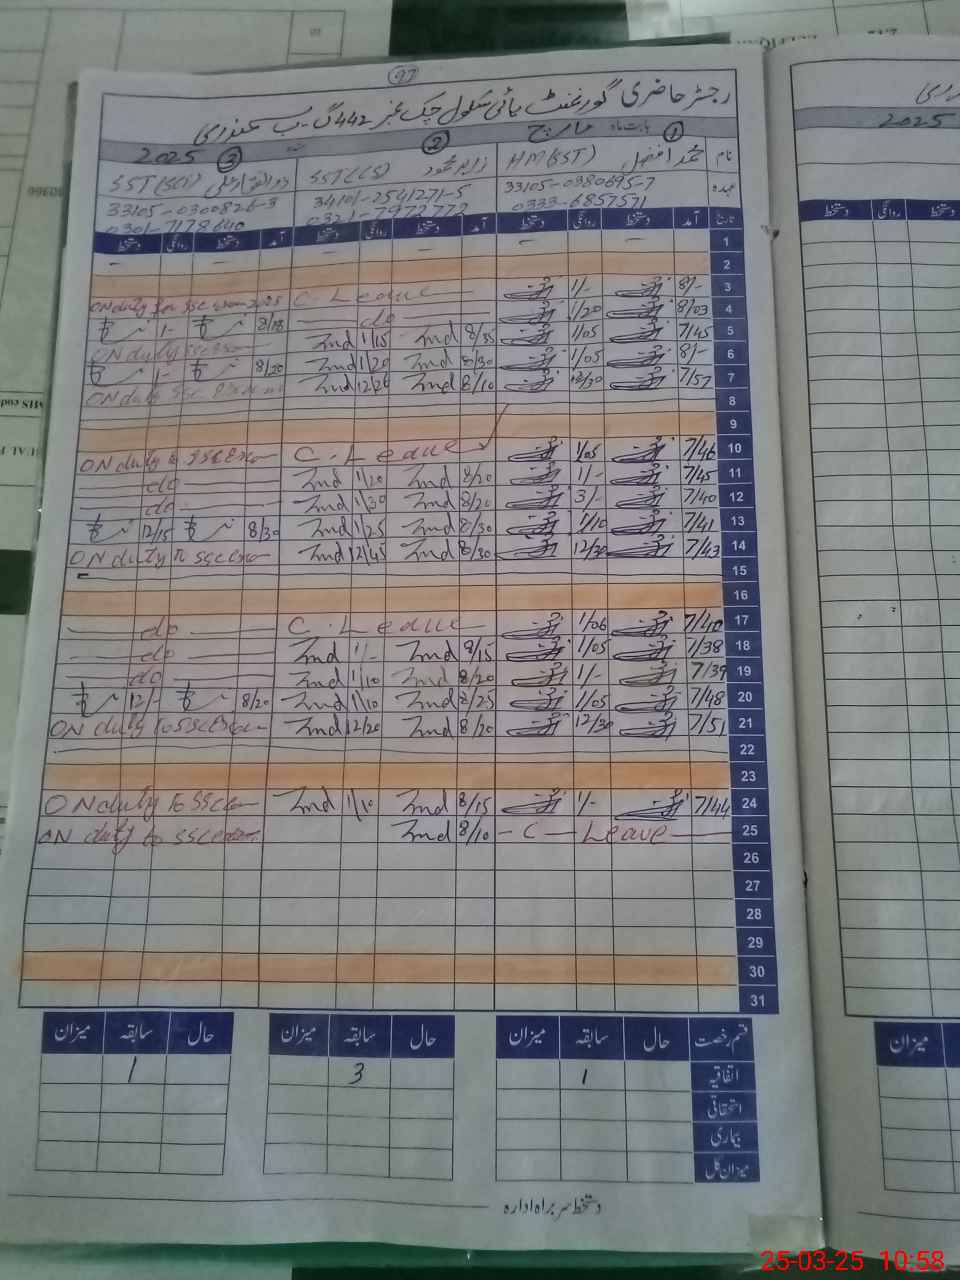 97
رجسٹر حاضری گورنمنٹ ہائی سکول چک نمبر 442 گ۔ب سمندری
بابت ماہ مارچ 2025
نام ① محمد افضل HM (SST) ② SST (CS) ③ SST (SCI)
عہدہ 33105-0380695-7 34101-2541271-5 33105-0300826-3
0333-6857571 0321-7972772 0301-7178640
تاریخ آمد دستخط روانگی دستخط آمد دستخط روانگی دستخط آمد دستخط روانگی دستخط
1 - - - - - -
2
3 8/- 1/- C. Leave ON duty for SSC exam 2025
4 8/03 1/20 do 8/18 1-
5 7/45 1/05 8/35 Zmd 1/15 Zmd ON duty
6 8/- 1/05 8/30 Zmd 1/20 Zmd 8/20 1-
7 7/57 12/30 8/10 Zmd 12/20 Zmd ON duty SSC
8
9
10 7/46 1/05 C. Leave ON duty to SSC Exam
11 7/45 1/- 8/20 Zmd 1/20 Zmd do
12 7/40 3/- 8/20 Zmd 1/30 Zmd do
13 7/41 1/10 8/30 Zmd 1/25 Zmd 8/30 12/15
14 7/43 12/30 8/30 Zmd 12/45 Zmd ON duty to SSC Exam
15
16
17 7/40 1/06 C. Leave do
18 7/38 1/05 8/15 Zmd 1/- Zmd do
19 7/39 1/- 8/20 Zmd 1/10 Zmd do
20 7/48 1/05 8/25 Zmd 1/10 Zmd 8/20 12/-
21 7/51 12/30 8/20 Zmd 12/20 Zmd ON duty to SSC Exam
22
23
24 7/44 1/- 8/15 Zmd 1/10 Zmd ON duty to SSC Exam
25 C - Leave 8/10 Zmd ON duty to SSC exam
26
27
28
29
30
31
قسم رخصت حال سابقہ میزان حال سابقہ میزان حال سابقہ میزان
اتفاقیہ 1 3 1
استحقاقی
بیماری
میزان کل
دستخط سربراہ ادارہ
2025
دستخط روانگی دستخط
میزان
25-03-25 10:58